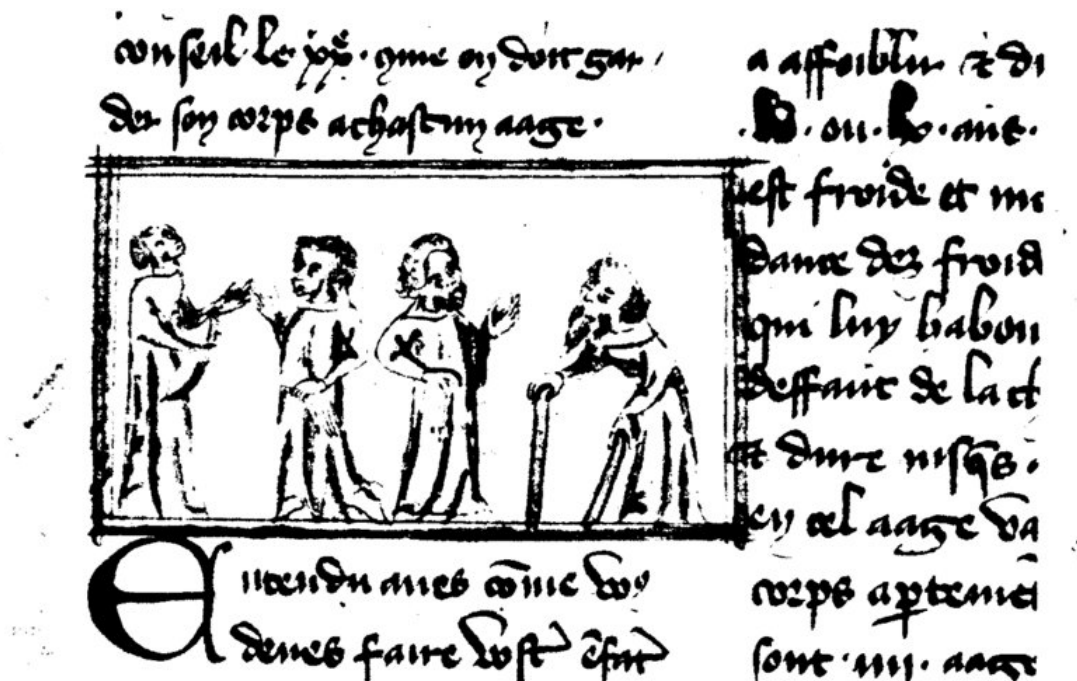 conseil · le · xxe · cōme on doit gar
der son corps a chascun aage ·
Entendu aues cōme vos
deues faire vostr̄ ēfāt
a affoiblir et di
· L · ou · Lx · ans ·
est froide et
dance dez froid
qui luy habon
deffaut de la ch
et dure iusqs ·
en cel aage va
corps aꝑtenir
sont · iiii · aage